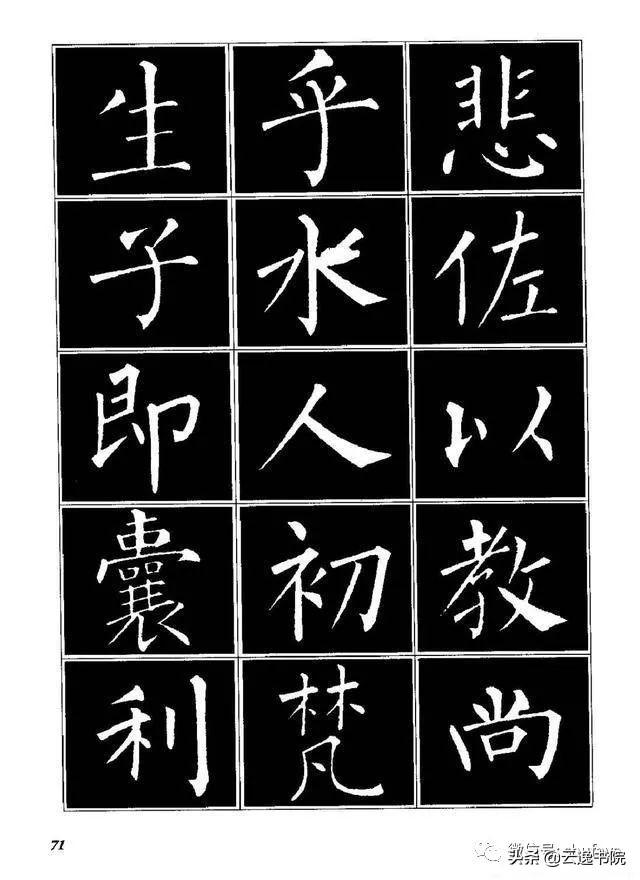 悲佐以教尚
乎水人初梵
生子即囊利
71
微信号:
头条 @云逸书院